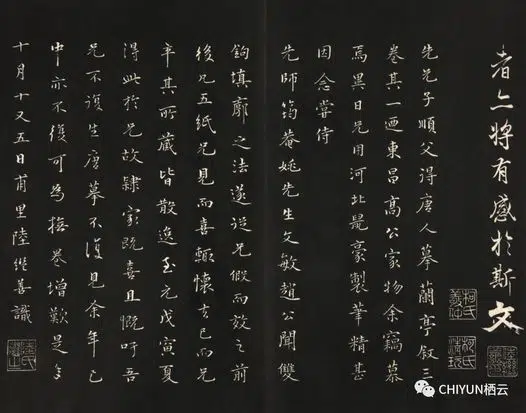 者亦将有感於斯文
先兄子順父得唐人摹蘭亭叙三
卷其一廼東昌高公家物余竊慕
焉異日兄用河北鼠豪製筆精甚
因念嘗侍
先師筠菴姚先生文敏趙公聞雙
鉤填廓之法遂從兄假而效之前
後凡五紙兄見而喜輒懷去已而兄
卒其所藏皆散逸至元戊寅夏
得此於兄故隸家既喜且慨吁吾
兄不復生唐摹不復見余年已
中亦不復可為撫卷增歎是年
十月十又五日甫里陸繼善識
CHIYUN栖云